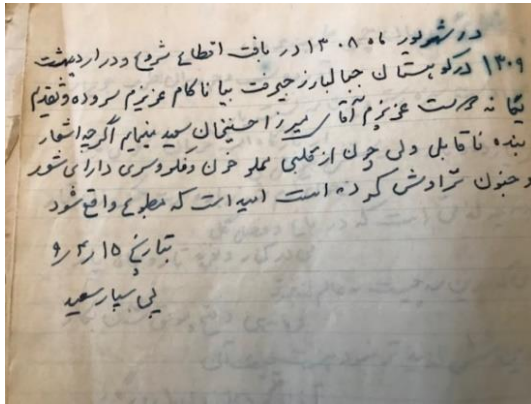 در شهریور ماه ۱۳۰۸ در بافت اقطاع شروع و در اردیبهشت
۱۳۰۹ در کوهستان جبالبارز جیرفت بیاد ناکام عزیزم سروده و تقدیم
یگانه دوست عزیزم آقای میرزا حسینخان سعید مینمایم اگرچه اشعار
بنده ناقابل ولی چون از قلبی مملو خون و فکر و سری دارای شور
و جنون تراوش کرده است امید است که مطبوع واقع شود
بتاریخ ۱۵ر۴ر۹
سعید